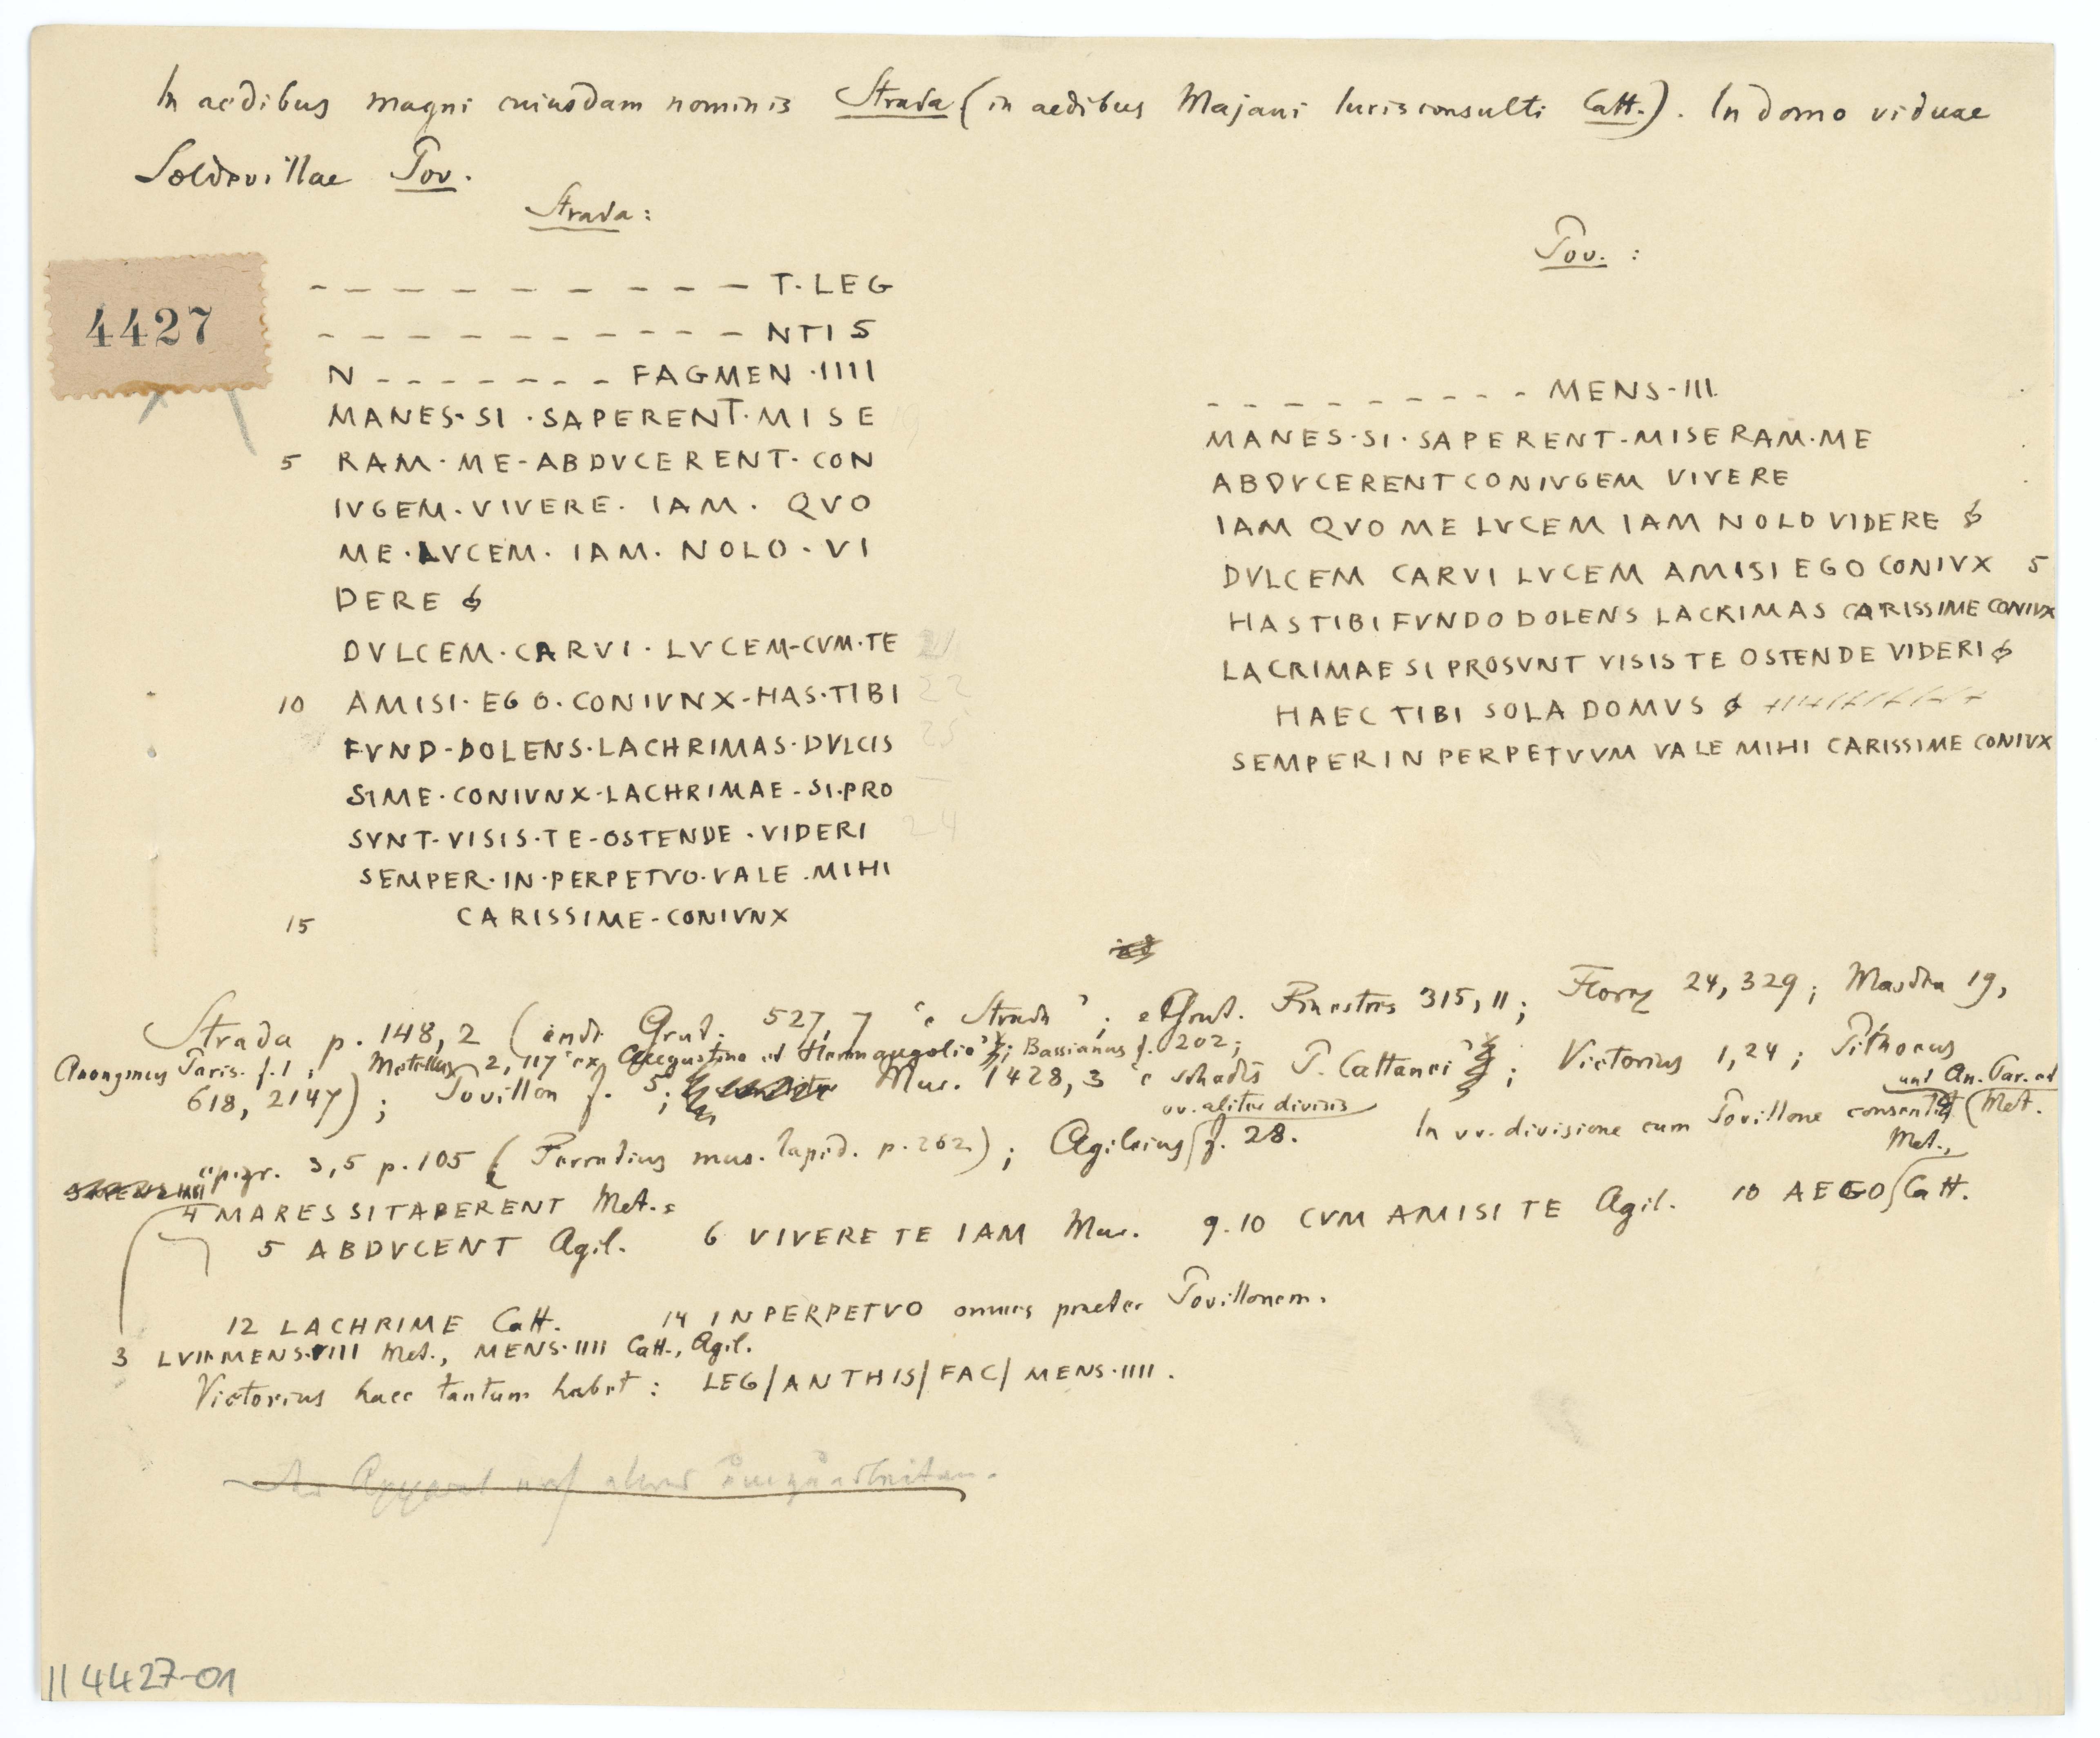 In aedibus magni cuiusdam nominis Strada (in aedibus Majani Iurisconsulti Catt.). In domo viduae
Soldevillae Pov.
Strada:
4427
T·LEG
NTI S
N - - - - - - - FAGMEN·IIII
MANES·SI·SAPERENT·MISE
5 RAM·ME·ABDVCERENT·CON
IVGEM·VIVERE·IAM·QVO
ME·LVCEM·IAM·NOLO·VI
DERE
DVLCEM·CARVI·LVCEM·CVM·TE 21
10 AMISI·EGO·CONIVNX·HAS·TIBI 22
FVND·DOLENS·LACHRIMAS·DVLCIS 23
SIME·CONIVNX·LACHRIMAE·SI·PRO
SVNT·VISIS·TE·OSTENDE·VIDERI 24
SEMPER·IN·PERPETVO·VALE·MIHI
15 CARISSIME·CONIVNX
Pov.:
- - - - - - - - - - MENS·III
MANES·SI·SAPERENT·MISERAM·ME
ABDVCERENT CONIVGEM VIVERE
IAM QVO ME LVCEM IAM NOLO VIDERE
DVLCEM CARVI LVCEM AMISI EGO CONIVX 5
HAS TIBI FVNDO DOLENS LACRIMAS CARISSIME CONIVX
LACRIMAE SI PROSVNT VISIS TE OSTENDE VIDERI
HAEC TIBI SOLA DOMVS
SEMPER IN PERPETVVM VALE MIHI CARISSIME CONIVX
Strada p. 148,2 (inde Grut. 527,7 'e Strada'; e Grut. Finestres 315,11; Florez 24,329; Masdeu 19,
618, 2147); Povillon f. 5; Mur. 1428,3 'e schedis P. Cattanei'; Victorius 1,24; Pithoeus
Anonymus Paris. f.1; Metellus 2,117 'ex Augustino et'; Bassianus f. 202;
epigr. 3,5 p. 105 ( mus. lapid. p. 262); Agileius vv. aliter divisis f. 28. In vv. divisione cum Povillone (An. Par. et Met.
4 MARES SITAPERENT Met.
5 ABDVCENT Agil. 6 VIVERE TE IAM Mur. 9.10 CVM AMISI TE Agil. 10 AEGO Met., Catt.
12 LACHRIME Catt. 14 INPERPETVO omnes praeter Povillonem.
3 MENS·VIIII Met., MENS·IIII Catt., Agil.
Victorius haec tantum habet: LEG/ANTHIS/FAC/MENS·IIII.
II 4427-01